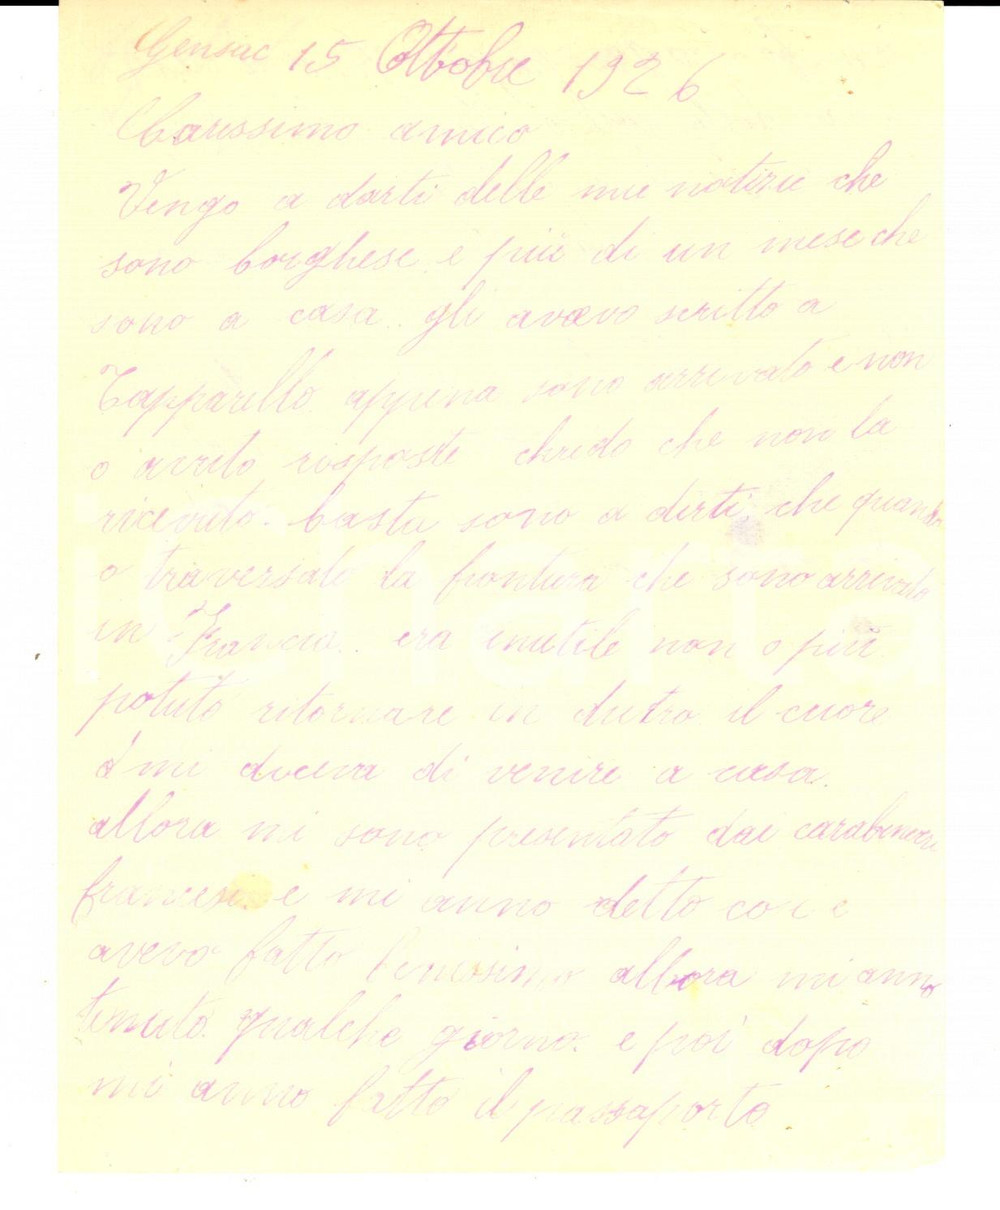 Gensac 15 Ottobre 1926
Carissimo amico
Vengo a darti delle mie notizie che
sono borghese e più di un mese che
sono a casa. gli avevo scritto a
Tapparello appena sono arrivato e non
o avuto risposte chredo che non la
ricevuto. basta sono a dirti che quando
o traversato la frontiera che sono arrivato
in Francia. era inutile non o più
potuto ritornare in dietro il cuore
mi diceva di venire a casa.
allora mi sono presentato dai carabineri
francesi e mi anno detto cosi e
avevo fatto benissimo allora mi anno
tenuto qualche giorno. e poi dopo
mi anno fatto il passaporto.
iCharta